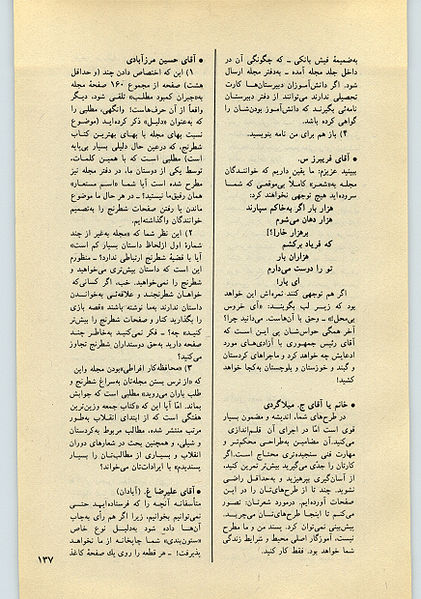 به‌ضمیمهٔ فیش بانکی ـ که چگونگی آن در
داخل جلد مجله آمده ـ به‌دفتر مجله ارسال
شود. دانش‌آموزان دبیرستان‌ها کارت
تحصیلی ندارند می‌توانند از دفتر دبیرستان
نامه‌ئی بگیرند که دانش‌آموز بودن‌شان را
گواهی کرده باشد.
۴) باز هم برای من نامه بنویسید.
• آقای فریبرز س.
ببینید عزیزم: ما یقین داریم که خوانندگان
مجله به‌شعرِ کاملاً بی‌موقعی که شما
سروده‌اید هیچ توجهی نخواهند کرد:
هزار بار اگر به‌خاکم سپارند
هزار دهان می‌شوم
برهزار خار[؟]
که فریاد برکشم
هزاران بار
تو را دوست می‌دارم
ای یار!
اگر هم توجهی کنند ثمره‌اش این خواهد
بود که زیر لب بگویند: «ای خروس
بی‌محل» ـ وحق با آن‌هاست. می‌دانید چرا؟
آخر همگی حواس‌شان پی این است که
آقای رئیس جمهوری با آزادی‌های مورد
ادعایش چه خواهد کرد و ماجراهای کردستان
و گنبد و خوزستان و بلوچستان به‌کجا خواهد
کشید!
• خانم یا آقای ج. میلاگردی
در طرح‌های شما، اندیشه و مضمون بسیار
قوی است امّا در اجرای آن قلم‌اندازی
می‌کنید. آن مضامین به‌طراحی محکم‌تر و
مهارت فنی سنجیده‌تری محتاج است. اگر
کارتان را جدی می‌گیرید بیش‌تر تمرین کنید،
از آسان‌گیری بپرهیزید و به‌حداقل راضی
نشوید. چند تا از طرح‌های‌تان را در این
صفحات آورده‌ایم. درمورد شعرتان، تصور
می‌کنم تا اینجا طرح‌های‌تان می‌چربد.
پیش‌بینی نمی‌توان کرد. پسند من و ما مطرح
نیست، آموزگار اصلی محیط و شرایط زندگی
شما خواهد بود. فقط کار کنید.
• آقای حسین مرزآبادی
۱) این که اختصاص دادن چند (و حداقل
هشت) صفحه از مجموع ۱۶۰ صفحهٔ مجله
به‌جبران کمبود مطلب» تلقی شود، دیگر
واقعاً از آن حرف‌هاست! وانگهی، مطلبی را
که به‌عنوان «دلیل» ذکر کرده‌اید (موضوع
نسبت بهای مجله با بهای بهترین کتاب
شطرنج، که درعین حال دلیلی بسیار بی‌پایه
است) مطلبی است که با همین کلمات،
توسط یکی از دوستان ما، در دفتر مجله نیز
مطرح شده است آیا شما «اسم مستعار»
همان رفیق‌ما نیستید؟ ـ در هر حال ما موضوع
ماندن یا رفتن صفحات شطرنج را به‌تصمیم
خوانندگان واگذاشته‌ایم.
۲) این نظر شما که «مجله به‌غیر از چند
شمارهٔ اول ازلحاظ داستان بسیار کم است»
آیا با قضیهٔ شطرنج ارتباطی ندارد؟ ـ منظورم
این است که داستان بیش‌تری می‌خواهید و
شطرنج را نمی‌خواهید. خب، اگر کسانی‌که
خواهان شطرنجند و علاقه‌ئی به‌خواندن
داستان ندارند به‌ما نوشته باشند «قصه بازی
را بگذارید کنار و صفحات شطرنج را بیش‌تر
کنید» چه؟ ـ فکر نمی‌کنید به‌خاطر چند
صفحه دارید به‌حق دوستداران شطرنج تجاوز
می‌کنید؟
۳) «محافظه‌کار افراطی»بودن مجله واین
که «از ترس بستن مجله‌تان به‌سراغ شطرنج و
طلب یاران می‌روید» مطلبی است که جوابش
بماند. امّا آیا این که «کتاب جمعه وزین‌ترین
هفتگی است که از ابتدای انقلاب به‌طور
مرتب منتشر شده، مطالب مربوط به‌کردستان
و شیلی، و همچنین بحث در شمارهای دوران
انقلاب و بسیاری از مطالب‌تان را بسیار
پسندیدم» با ایرادات‌تان می‌خواند؟
• آقای علیرضا غ. (آبادان)
متأسفانه آنچه را که فرستاده‌اید حتی
نمی‌توانیم بخوانیم، زیرا اگر هم رأی به‌چاپ
آن‌ها داده شود به‌دلیل نوع خاص
«ستون‌بندی» شما چاپخانه از ما نخواهد
پذیرفت! ـ هر قطعه را روی یك صفحهٔ کاغذ
۱۳۷